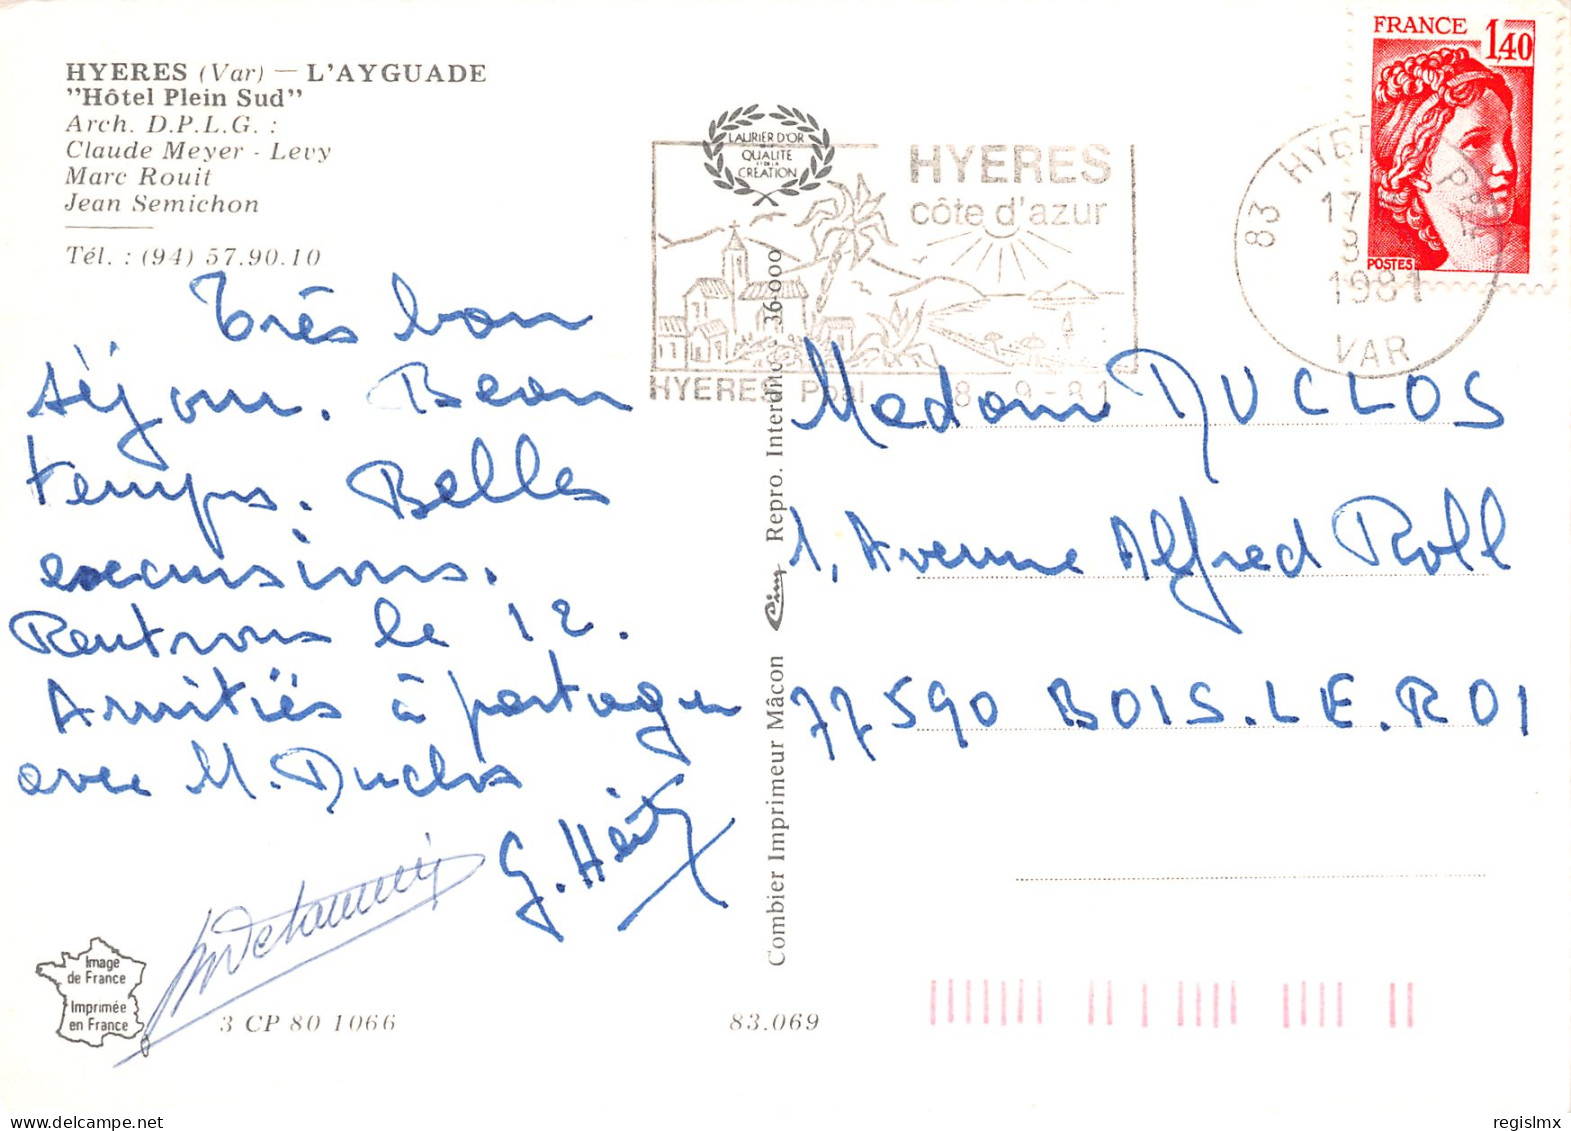 HYERES (Var) — L'AYGUADE
"Hôtel Plein Sud"
Arch. D.P.L.G. :
Claude Meyer - Levy
Marc Rouit
Jean Semichon
Tél. : (94) 57.90.10
Très bon
séjour. Beau
temps. Belles
excursions.
Rentrons le 12.
Amitiés à partager
avec M. Duclos
G.
Image
de France
Imprimée
en France
3 CP 80 1066
83.069
LAURIER D'OR
QUALITE
ET DE LA
CREATION
HYERES
côte d'azur
HYERES Ppal
8-9-81
Combier Imprimeur Mâcon Cim Repro. Interdite - 36-000
FRANCE
1,40
POSTES
83 HYERES Ppal
17
8
1981
VAR
Madame DUCLOS
1, Avenue Alfred Roll
77590 BOIS.LE.ROI
regislmx